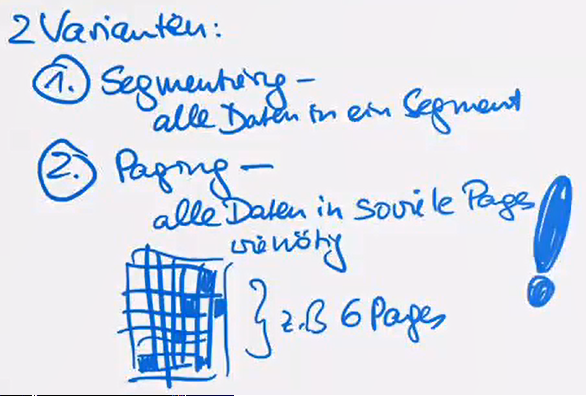 2 Varianten:
1. Segmentierung –
alle Daten in ein Segment
2. Paging –
alle Daten in soviele Pages
wie nötig
z.B 6 Pages
!